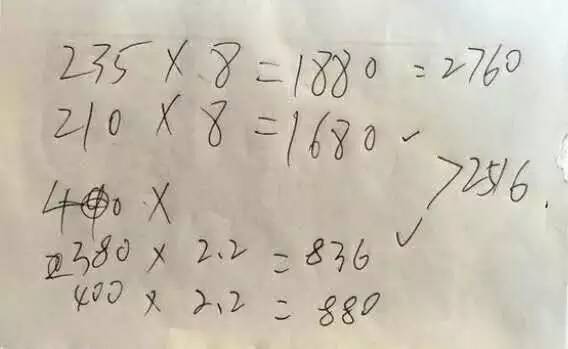 235 × 8 = 1880 = 2760
210 × 8 = 1680 ✓
> 2516.
×
380 × 2.2 = 836 ✓
400 × 2.2 = 880